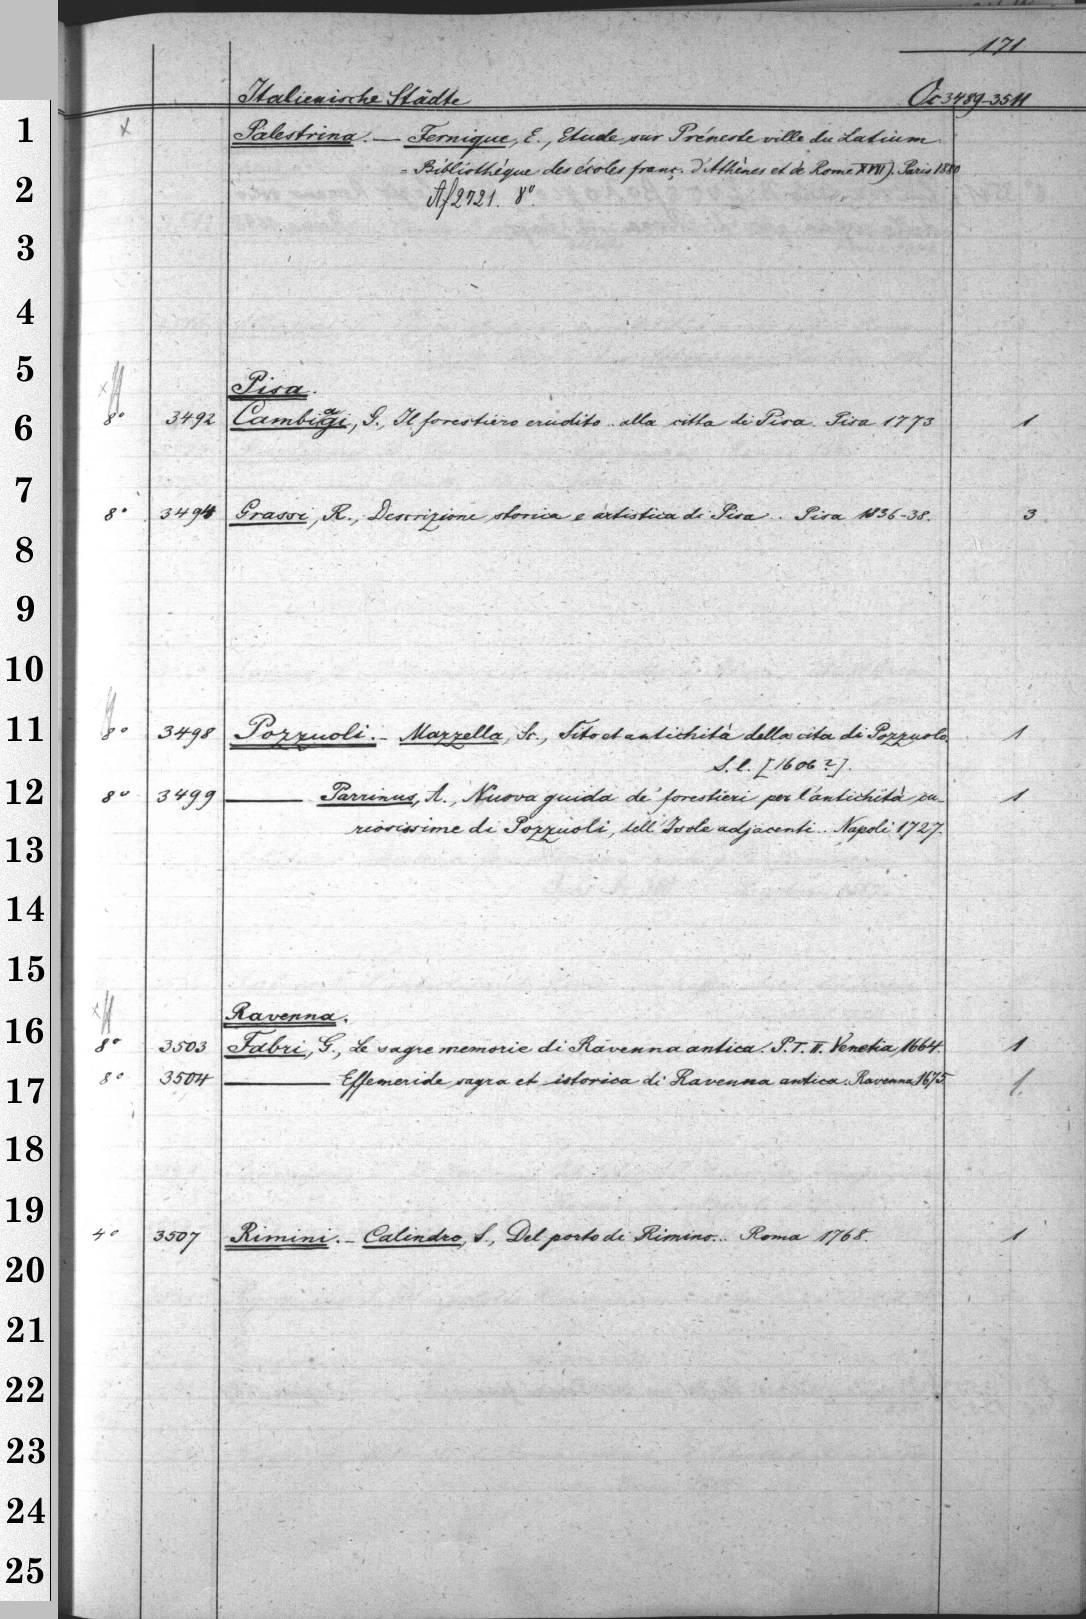 171
Italienische Städte Oc 3489-3511
1
x Palestrina. — Fernique, E., Etude sur Préneste ville du Latium
= Bibliothèque des écoles franç. d'Athènes et de Rome XVII). Paris 1880
2
Af 2721. 8°.
3
4
5
Pisa.
6
8° 3492 Cambiagi, G., Il forestiero erudito .. alla citta di Pisa. Pisa 1773 1
7
8° 3494 Grassi, R., Descrizione storica e artistica di Pisa .. Pisa 1836-38. 3
8
9
10
11
8° 3498 Pozzuoli. — Mazzella, Sc., Sito et antichità della cita di Pozzuolo. 1
S. l. [1606?].
12
8° 3499 — Parrinus, A., Nuova guida de' forestieri per l'antichità cu- 1
riosissime di Pozzuoli, dell' Isole adjacenti .. Napoli 1727.
13
14
15
Ravenna.
16
8° 3503 Fabri, G., Le sagre memorie di Ravenna antica. P. I. II. Venetia 1664. 1
8° 3504 — Effemeride sagra et istorica di Ravenna antica. Ravenna 1675. 1
17
18
19
4° 3507 Rimini. — Calindro, S., Del porto di Rimino... Roma 1768. 1
20
21
22
23
24
25